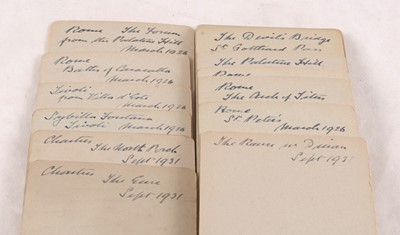 Rome The Forum
from the Palatine Hill
March 1926
Rome
Baths of Caracalla
March 1926
Tivoli
from Villa d'Este
March 1926
Sybilla Fontana
Tivoli March 1926
Chartres
The North Porch
Sept 1931
Chartres The Eure
Sept 1931
The Devil's Bridge
St Gotthard Pass
The Palatine Hill
Rome
Rome
The Arch of Titus
Rome
St Peter's
March 1926
The Rance
Dinan
Sept 1931